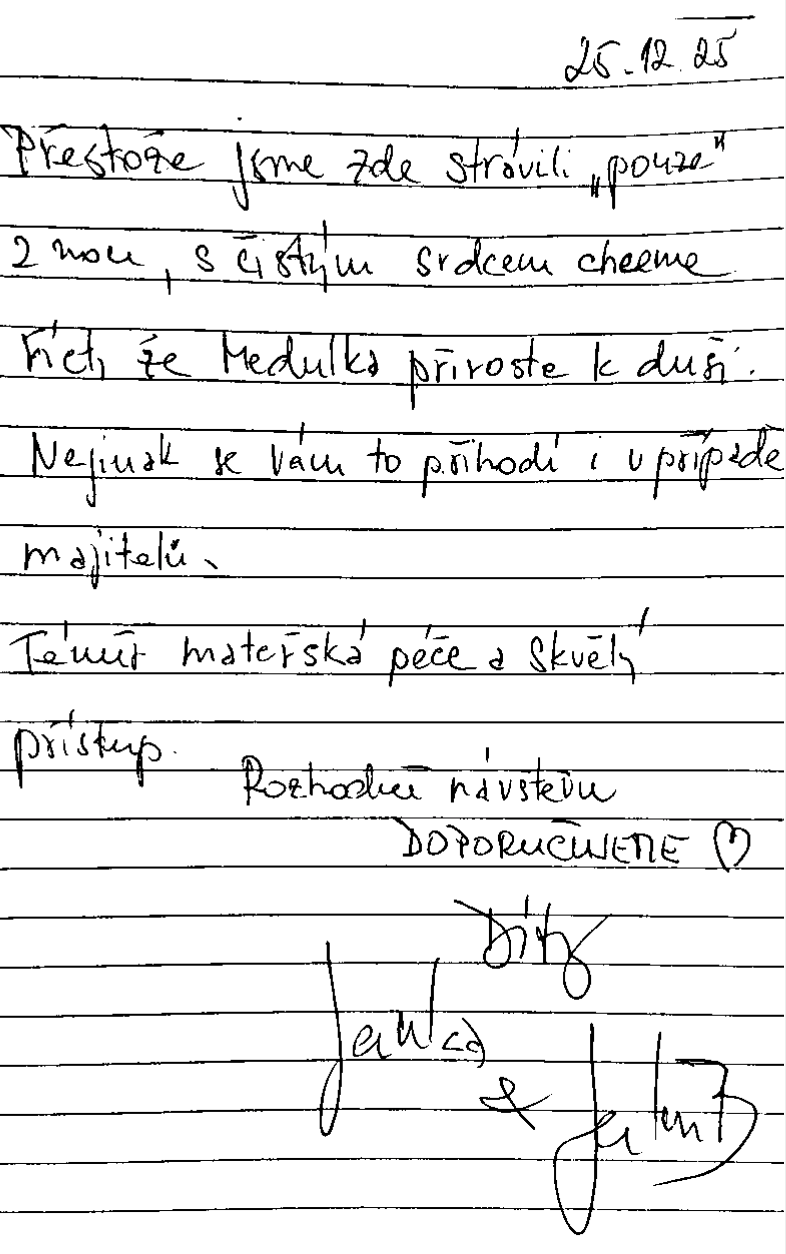 25.12.25
Přestože jsme zde strávili „pouze“
2 noci, s čistým srdcem chceme
říct, že Medulka přiroste k duši.
Nejinak se vám to přihodí i v případě
majitelů.
Téměř mateřská péče a skvělý
přístup.
Rozhodně návštěvu
DOPORUČUJEME ♡
Díky
&